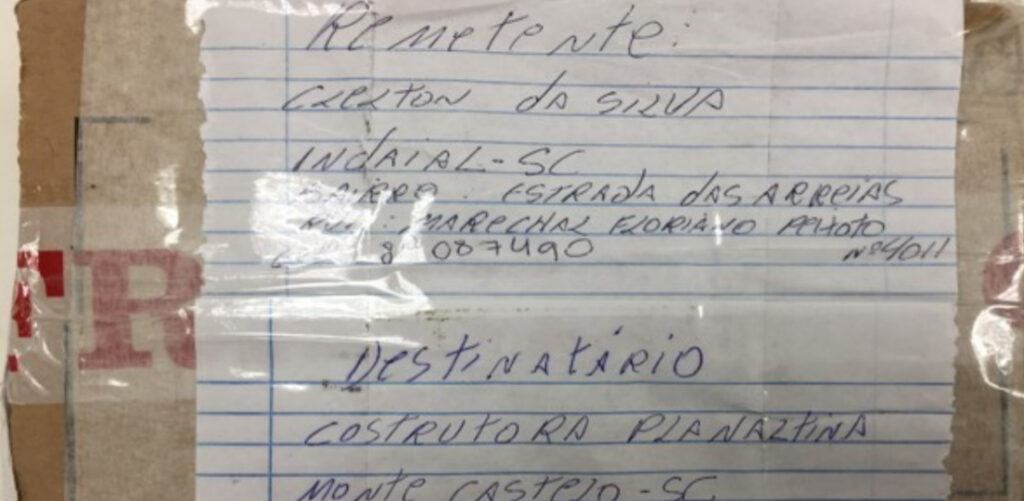 Remetente:
CLEITON da SILVA
INDAIAL-SC
BAIRRO: ESTRADA das AREIAS
RUA: MARECHAL FLORIANO PEIXOTO
8 087490 Nº4011
TR
Destinatário
COSTRUTORA PLANALTINA
MONTE CASTELO-SC